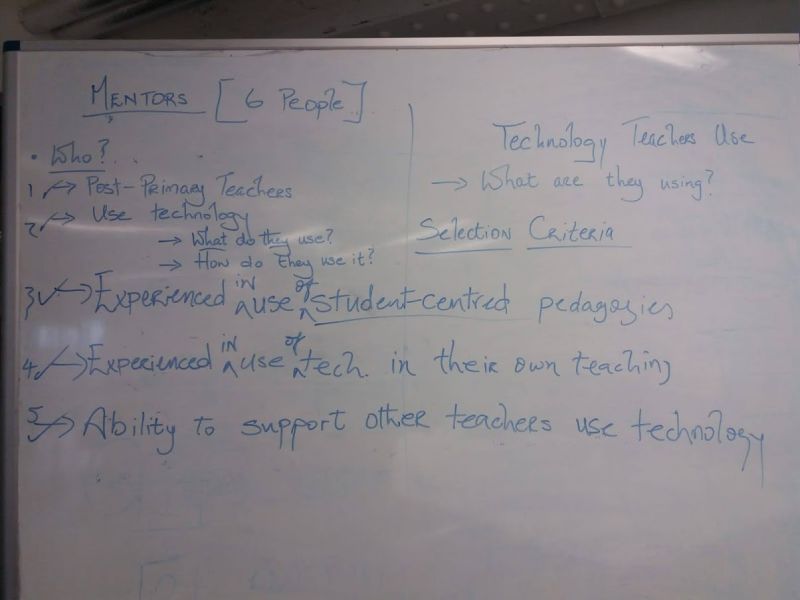 MENTORS [6 People]
• Who?
1 → Post-Primary Teachers
2 → Use technology
→ What do they use?
→ How do they use it?
Technology Teachers Use
→ What are they using?
Selection Criteria
3 → Experienced in use of student-centred pedagogies
4 → Experienced in use of tech. in their own teaching
5 → Ability to support other teachers use technology